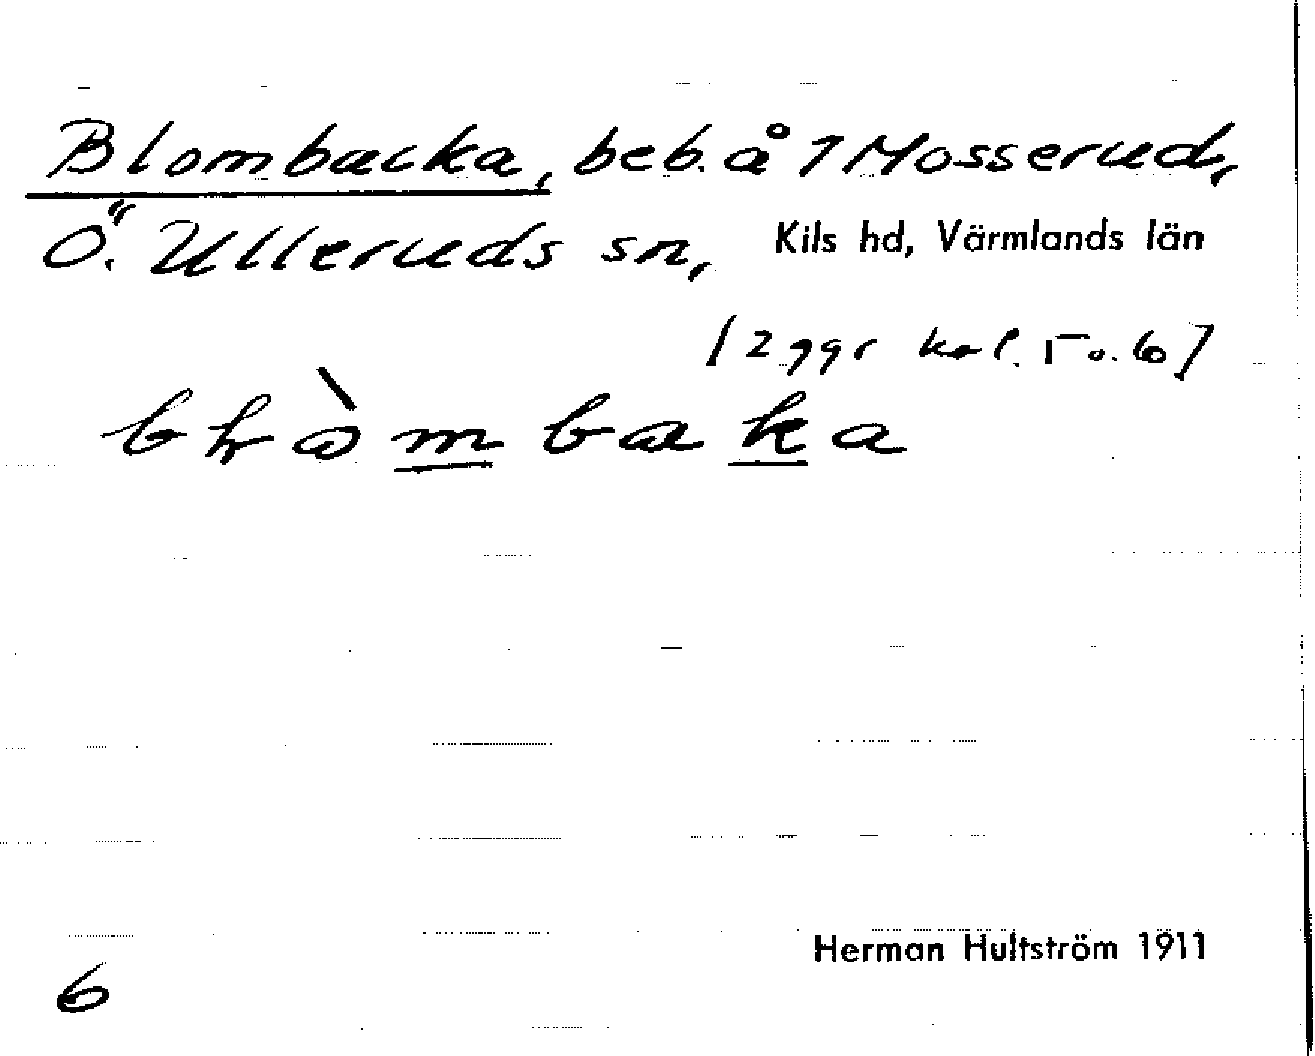 Blombacka, beb. å 1 Mosserud,
Ö. Ulleruds sn, Kils hd, Värmlands län
[2 ggr kol. 5 o. 6]
baka
Herman Hultström 1911
6